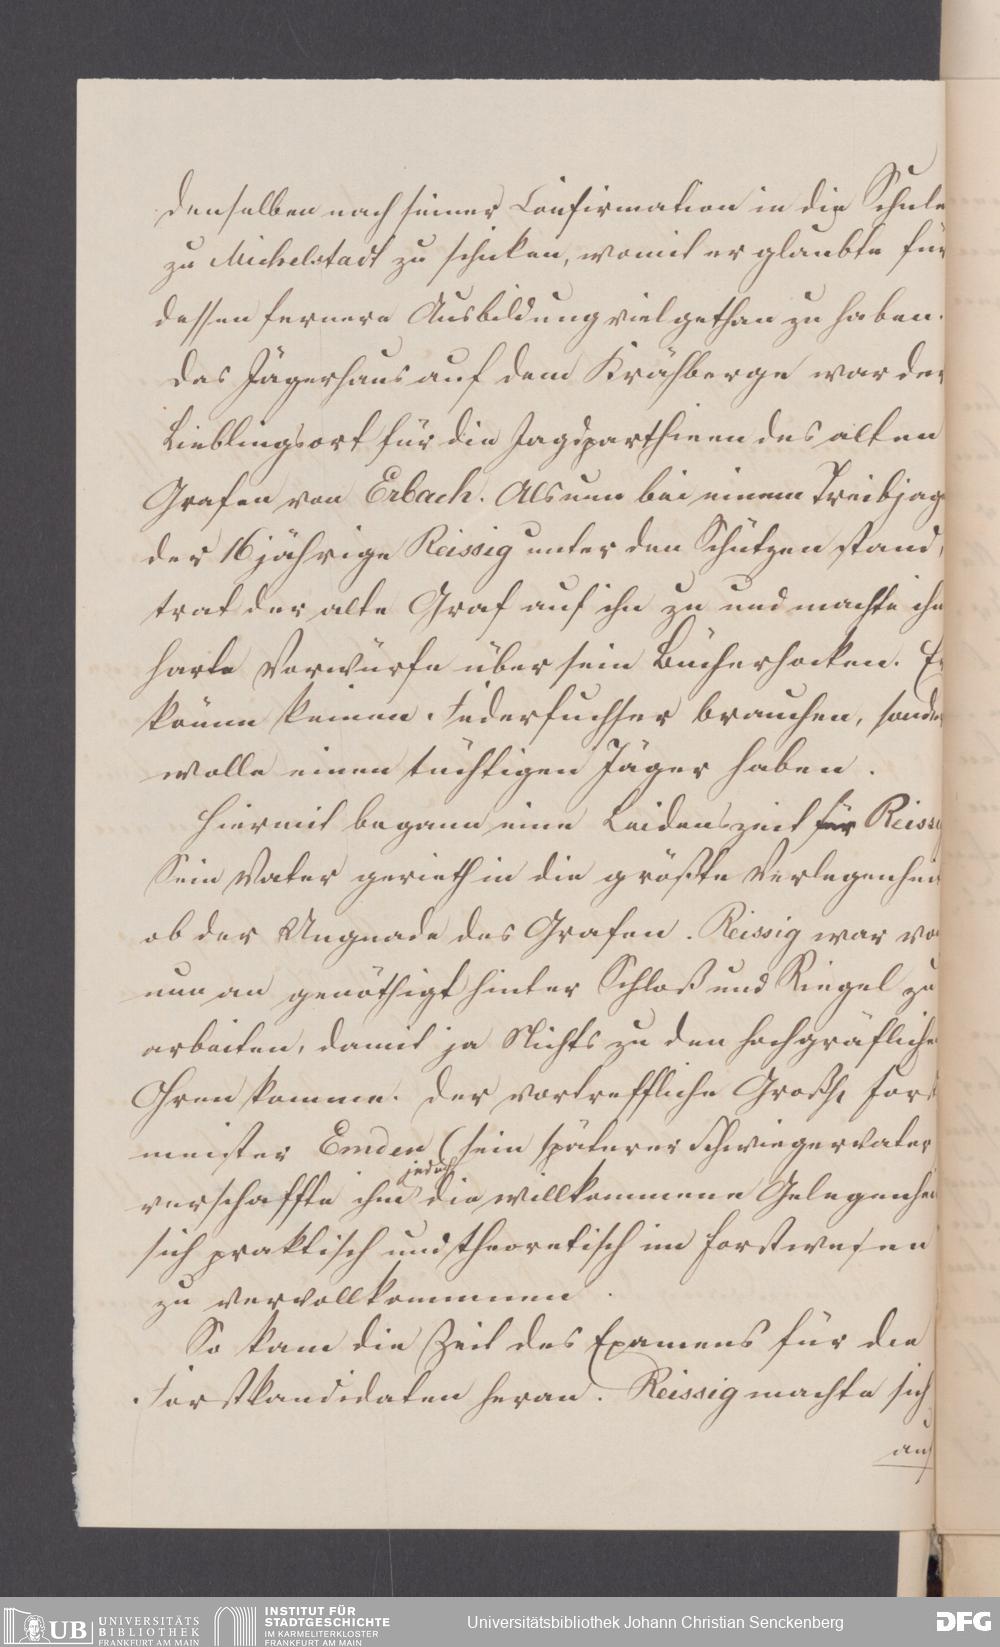 denselben nach seiner Confirmation in die Schule
zu Michelstadt zu schicken, womit er glaubte für
dessen fernere Ausbildung viel gethan zu haben.
Das Jägerhaus auf dem Krähberge war der
Lieblingsort für die Jagdparthieen des alten
Grafen von Erbach. Als nun bei einem Treibjag
der 16jährige Reissig unter den Schützen stand,
trat der alte Graf auf ihn zu und machte ihm
harte Vorwürfe über sein Bücherhocken. Er
könne keinen Federfuchser brauchen, sonder
wolle einen tüchtigen Jäger haben.
Hiermit begann eine Leidenszeit für Reissig
Sein Vater gerieth in die größte Verlegenhei
ob der Ungnade des Grafen. Reissig war vo
nun an genöthigt hinter Schloß und Riegel zu
arbeiten, damit ja Nichts zu den hochgräfliche
Ohren komme. Der vortreffliche Großh. Forst
meister Emden (sein späterer Schwiegervater
jedoch
verschaffte ihm die willkommene Gelegenhei
sich praktisch und theoretisch im Forstwesen
zu vervollkommnen.
So kam die Zeit des Examens für die
Forstkandidaten heran. Reissig machte sich
auf
UB UNIVERSITÄTS
BIBLIOTHEK
FRANKFURT AM MAIN
INSTITUT FÜR
STADTGESCHICHTE
IM KARMELITERKLOSTER
FRANKFURT AM MAIN
Universitätsbibliothek Johann Christian Senckenberg
DFG